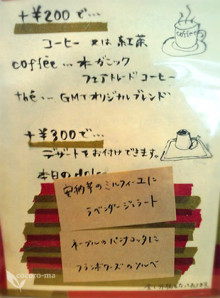 +¥200で…
コーヒー 又は 紅茶
coffee
coffée … オーガニック
フェアトレード コーヒー
thé … GMTオリジナルブレンド
+¥300で…
デザートをお付けできます。
本日の
安納芋のミルフィーユに
ラベンダージェラート
キャラメルのパンナコッタに
フランボワーズのソルベ
cocoro-ma